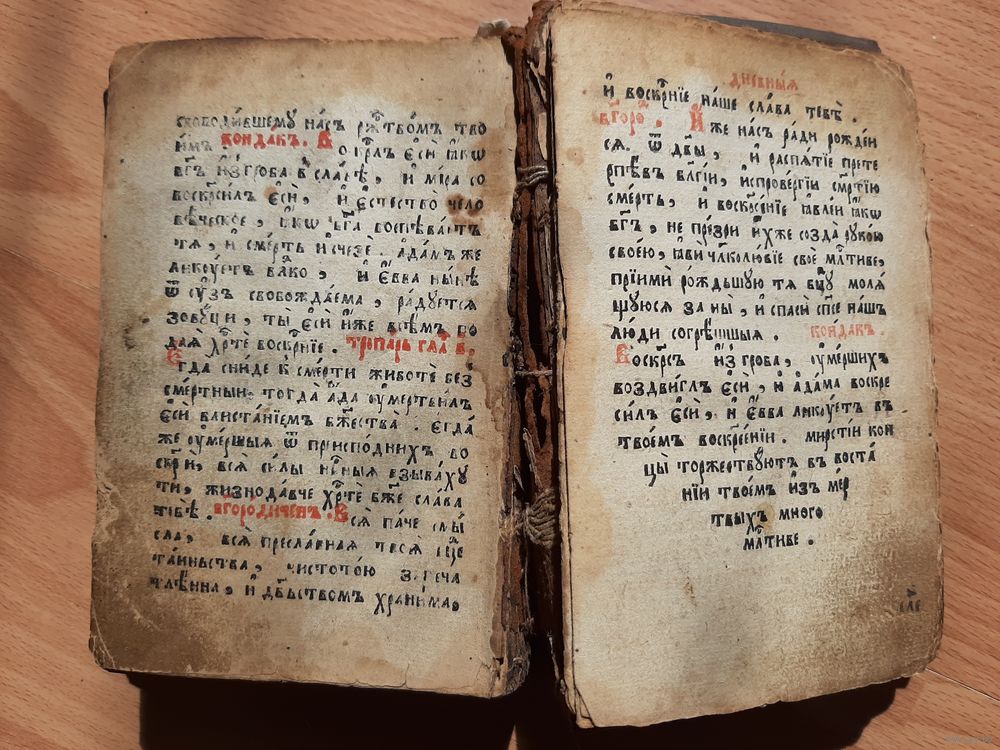 свободи́вшему на́съ ржⷭ҇тво́мъ тво
и́мъ. конда́къ. В
о скр҃лъ є҆сѝ ꙗ҆́кѡ
бг҃ъ и҆з̾ гро́ба в̾ сла́вѣ, и҆ мі́ра со
воскр҃си́лъ є҆сѝ, и҆ є҆стество̀ чело
вѣ́ческое, ꙗ҆́кѡ бг҃а воспѣва́етъ
тѧ̀, и҆ сме́рть и҆счезѐ. а҆да́мъ же
ликꙋ́етъ влⷣко, и҆ є҆́вва ны́нѣ
ѿ ᲂу҆́зъ свобожда́ема, ра́дꙋетсѧ
зовꙋ́щи, ты̀ є҆сѝ и҆́же всѣ́мъ по
даѧ̀ хрⷭ҇тѐ воскрⷭ҇ніе. трⷪ҇па́рь гла́ в҃,
Є҆
гда̀ сни́де к̾ сме́рти животѐ без̾
сме́ртныи, тогда̀ а҆́да ᲂу҆мертви́лъ
є҆сѝ блиста́нїемъ бжⷭ҇тва̀. є҆гда́
же ᲂу҆ме́ршыѧ ѿ приспо́дних̾ во
скр҃сѝ, всѧ̀ си́лы нбⷭ҇ныѧ взыва́хꙋ
ти, жизнода́вче хрⷭ҇тѐ бж҃е сла́ва
тебѣ̀. бг҃оро́диченъ. В
сѧ̀ па́че смы́
сла, всѧ̀ пресла́внаѧ твоѧ̀ бцⷣе
та́иньства, чистото́ю запеча
тлѣ́нна, и҆ дѣ́вьствомъ храни́ма,
дне́вныѧ
и҆ воскрⷭ҇нїе на́ше сла́ва тебѣ̀.
бг҃оро̀. И҆
́же на́съ ра́ди рожде́и
сѧ. ѿ дв҃ы, и҆ распѧ́тїе прете
рпѣ́въ бл҃гі́и, испрове́ргіи сме́ртїю
сме́рть, и҆ воскрⷭ҇е́нїе ꙗ҆вле́и ꙗ҆́кѡ
бг҃ъ, не пре́зри и҆́хже созда̀ рꙋко́ю
свое́ю, ꙗ҆вѝ чл҃колю́бїе своѐ млⷭ҇тиве,
прїимѝ ро́ждьшꙋю тѧ бцⷣꙋ молѧ́
щꙋюсѧ за ны̀, и҆ спасѝ сп҃се на́шъ
лю́ди согрѣ́шшыѧ. конда́къ.
В
оскр҃съ и҆з̾ гро́ба, ᲂу҆ме́рших̾
воздви́глъ є҆сѝ, и҆ а҆да́ма воскре
си́лъ є҆сѝ, и҆ є҆́вва ликꙋ́етъ въ
твое́мъ воскрⷭ҇е́нїи. ми́рстїи кон
цы̀ торжествꙋ́ютъ въ воста́
нїи твое́мъ и҆з̾ ме́р
твыхъ много
млⷭ҇тиве.